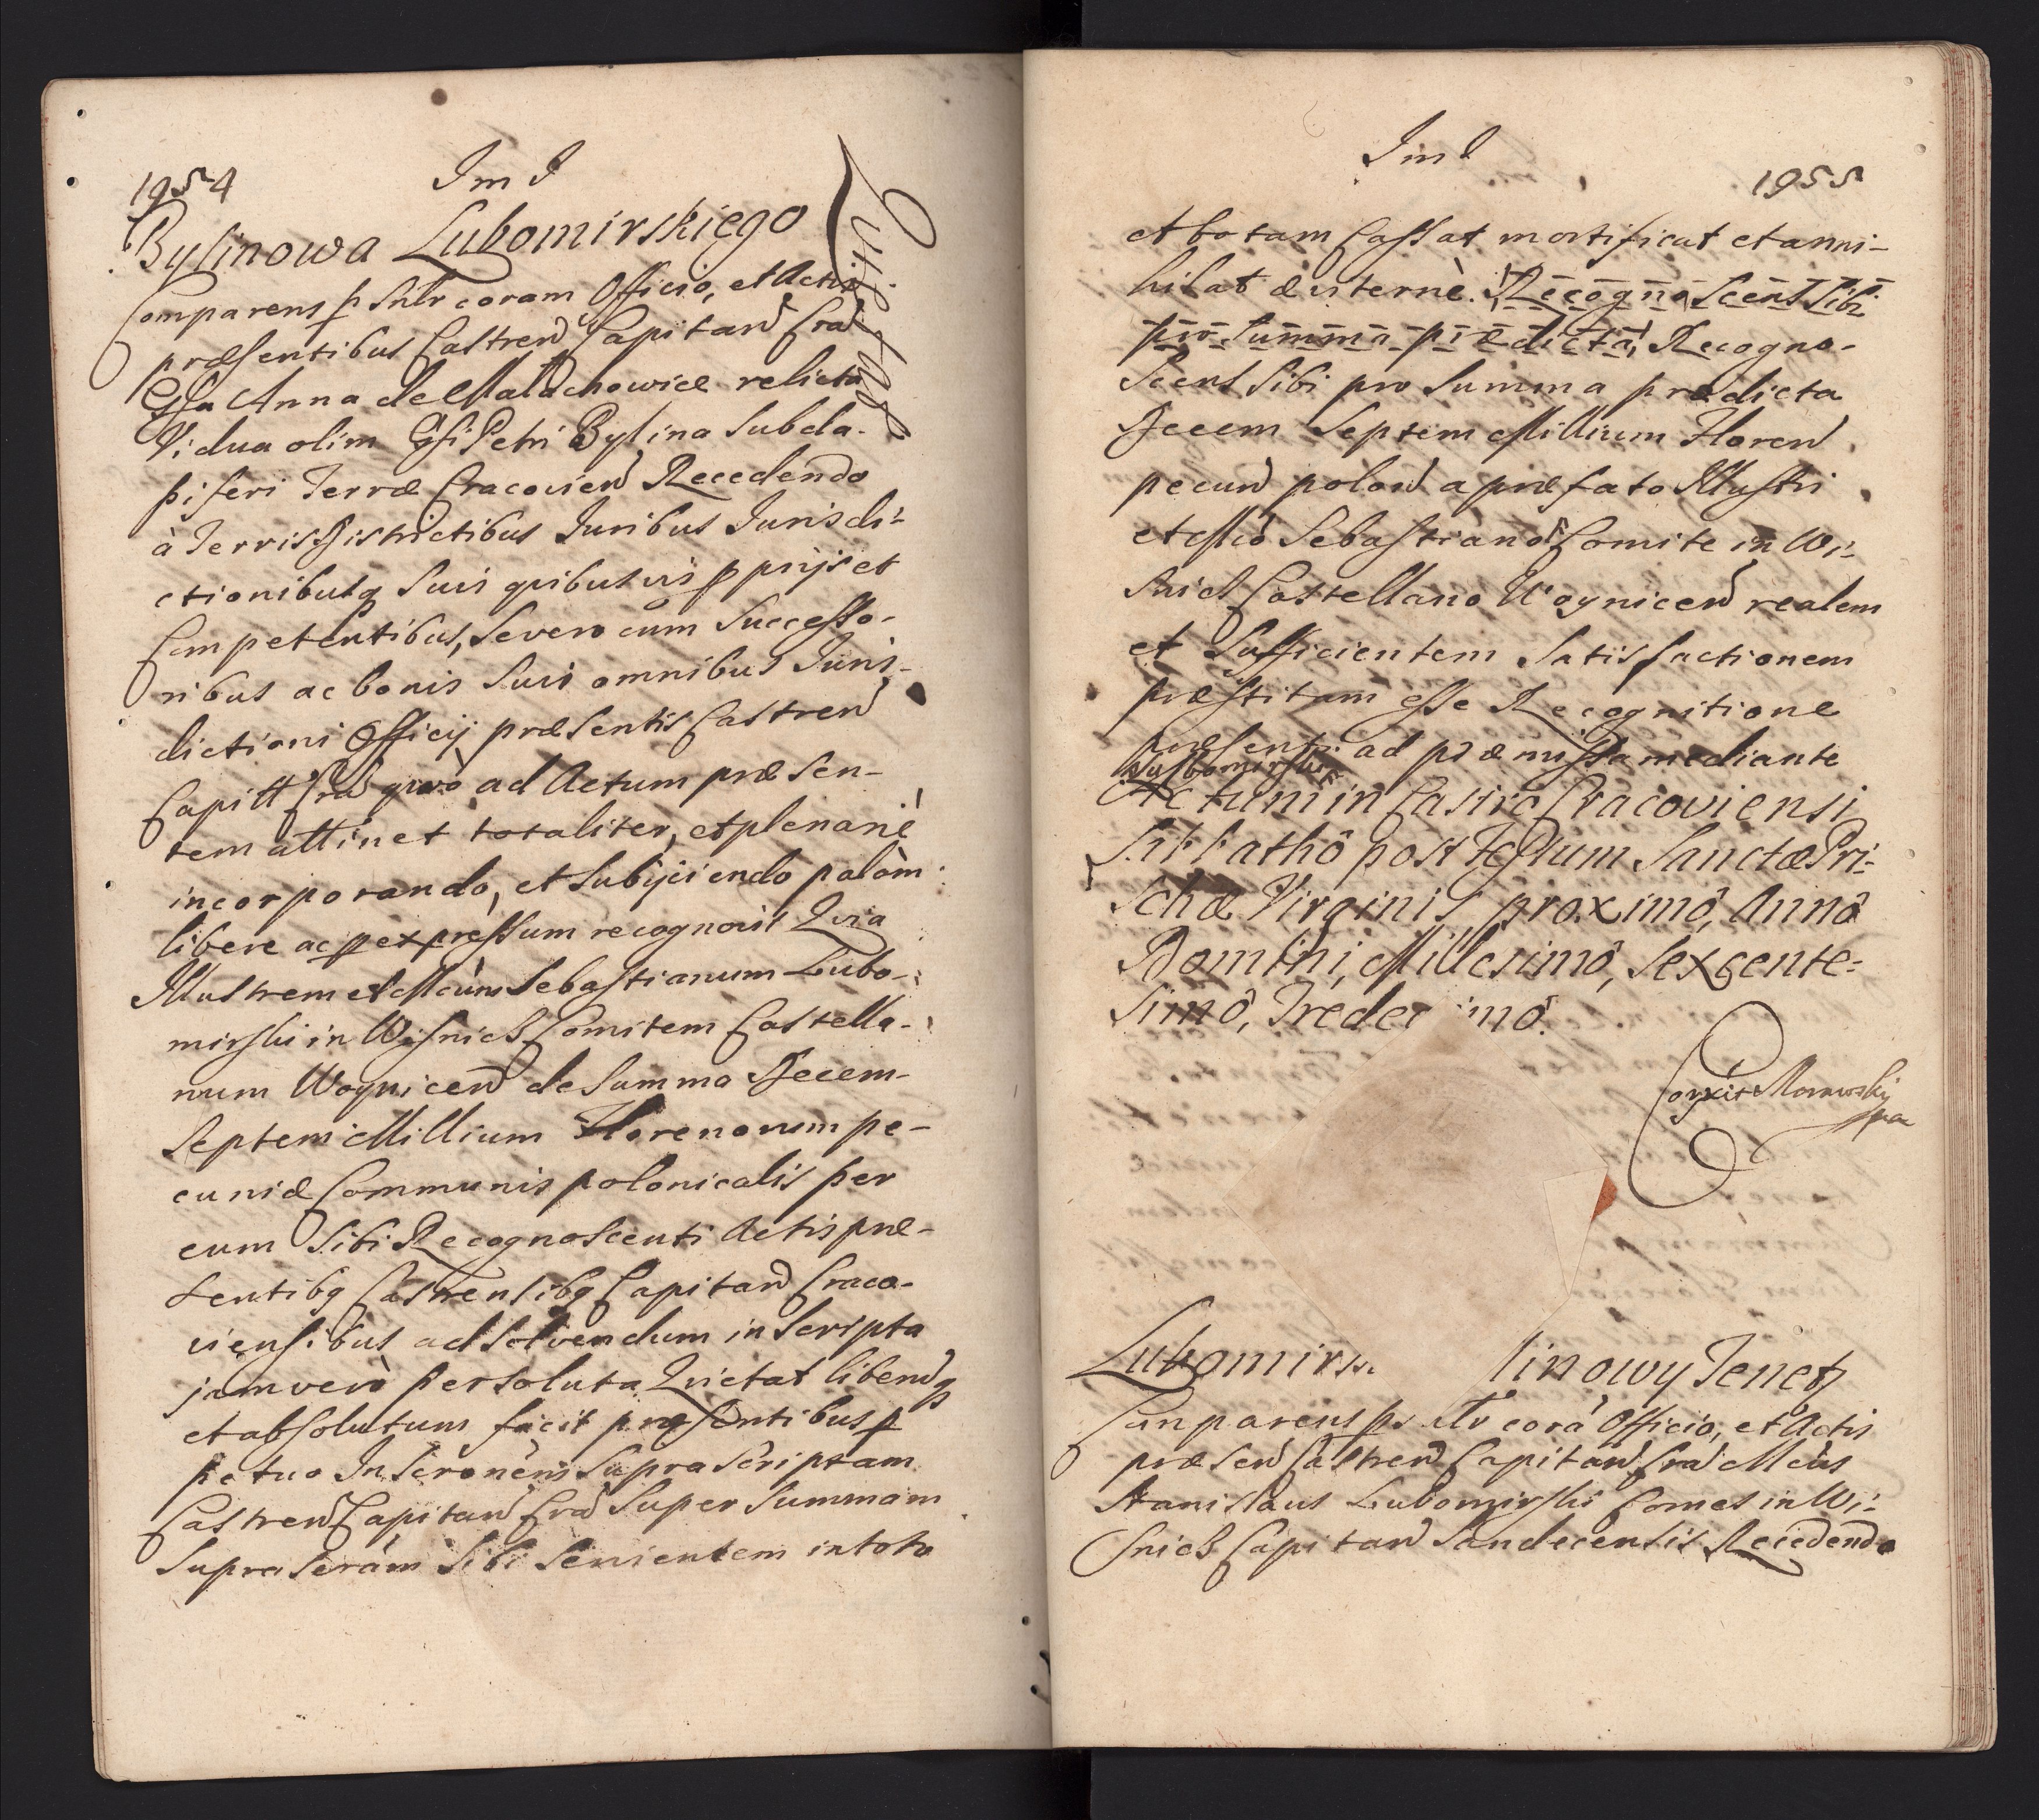 1954
Im I
Bylinowa Lubomirskiego
Quietat
Comparens psnlr coram Officio, et Actis
præsentibus Castren Capitan Cra
Gsa Anna de Malachowice relicta
Vidua olim Gsi Petri Bylina Subda-
piferi Terræ Cracovien Recedendo
à Terris Districtibus Iuribus Iurisdi-
ctionibusq suis quibusvis pprijs et
Competentibus, se vero cum Successo-
ribus ac bonis suis omnibus Juris-
dictioni Officij præsentis Castren
Capitt Cra quo ad Actum præsen-
tem attinet totaliter, et plenarié
incorporando, et subijciendo palàm
libere ac p expressum recognovit Quia
Illustrem et Mcum Sebastianum Lubo-
mirski in Wisnicz Comitem Castella-
num Woynicen de Summa Decem
Septem Millium Florenorum pe-
cuniæ Communis polonicalis per
eum sibi Recognoscenti Actis præ-
sentibq Castrensibq Capitan Craco-
viensibus ad solvendum inscripta
jam verò persoluta Quietat liberuq
et absolutum facit præsentibus p
petuo Inscronem supra scriptam
Castren Capitan Cra super summam
supra scram sibi servientem in toto
Im I
1955
et totam Cassat mortificat et anni-
hilat æviternè. Recognoscens sibi
pro summa prædicta, Recogno-
scens sibi pro summa prædicta
Decem Septem Millium Floren
pecun polon a præfato Illustri
et Mco Sebastiano Comite in Wi-
snicz Castellano Woynicen realem
et sufficientem satisfactionem
præstitam esse Recognitione
præsenti ad præmissa mediante
Lubomirski
Actum in Castro Cracoviensi
Sabbathô post Festum Sanctæ Pri-
scæ Virginis proximô, Annô
Domini, Millesimô, Sexcente-
simô, Trede imô.
Correxit Morawskij
mpa
Lubomirs linowy Tenet
Comparens ps coră Officio, et Actis
præsen Castren Capitan Cra Mcus
Stanislaus Lubomirski Comes in Wi-
snicz Capitan Sandecensis Recedendo